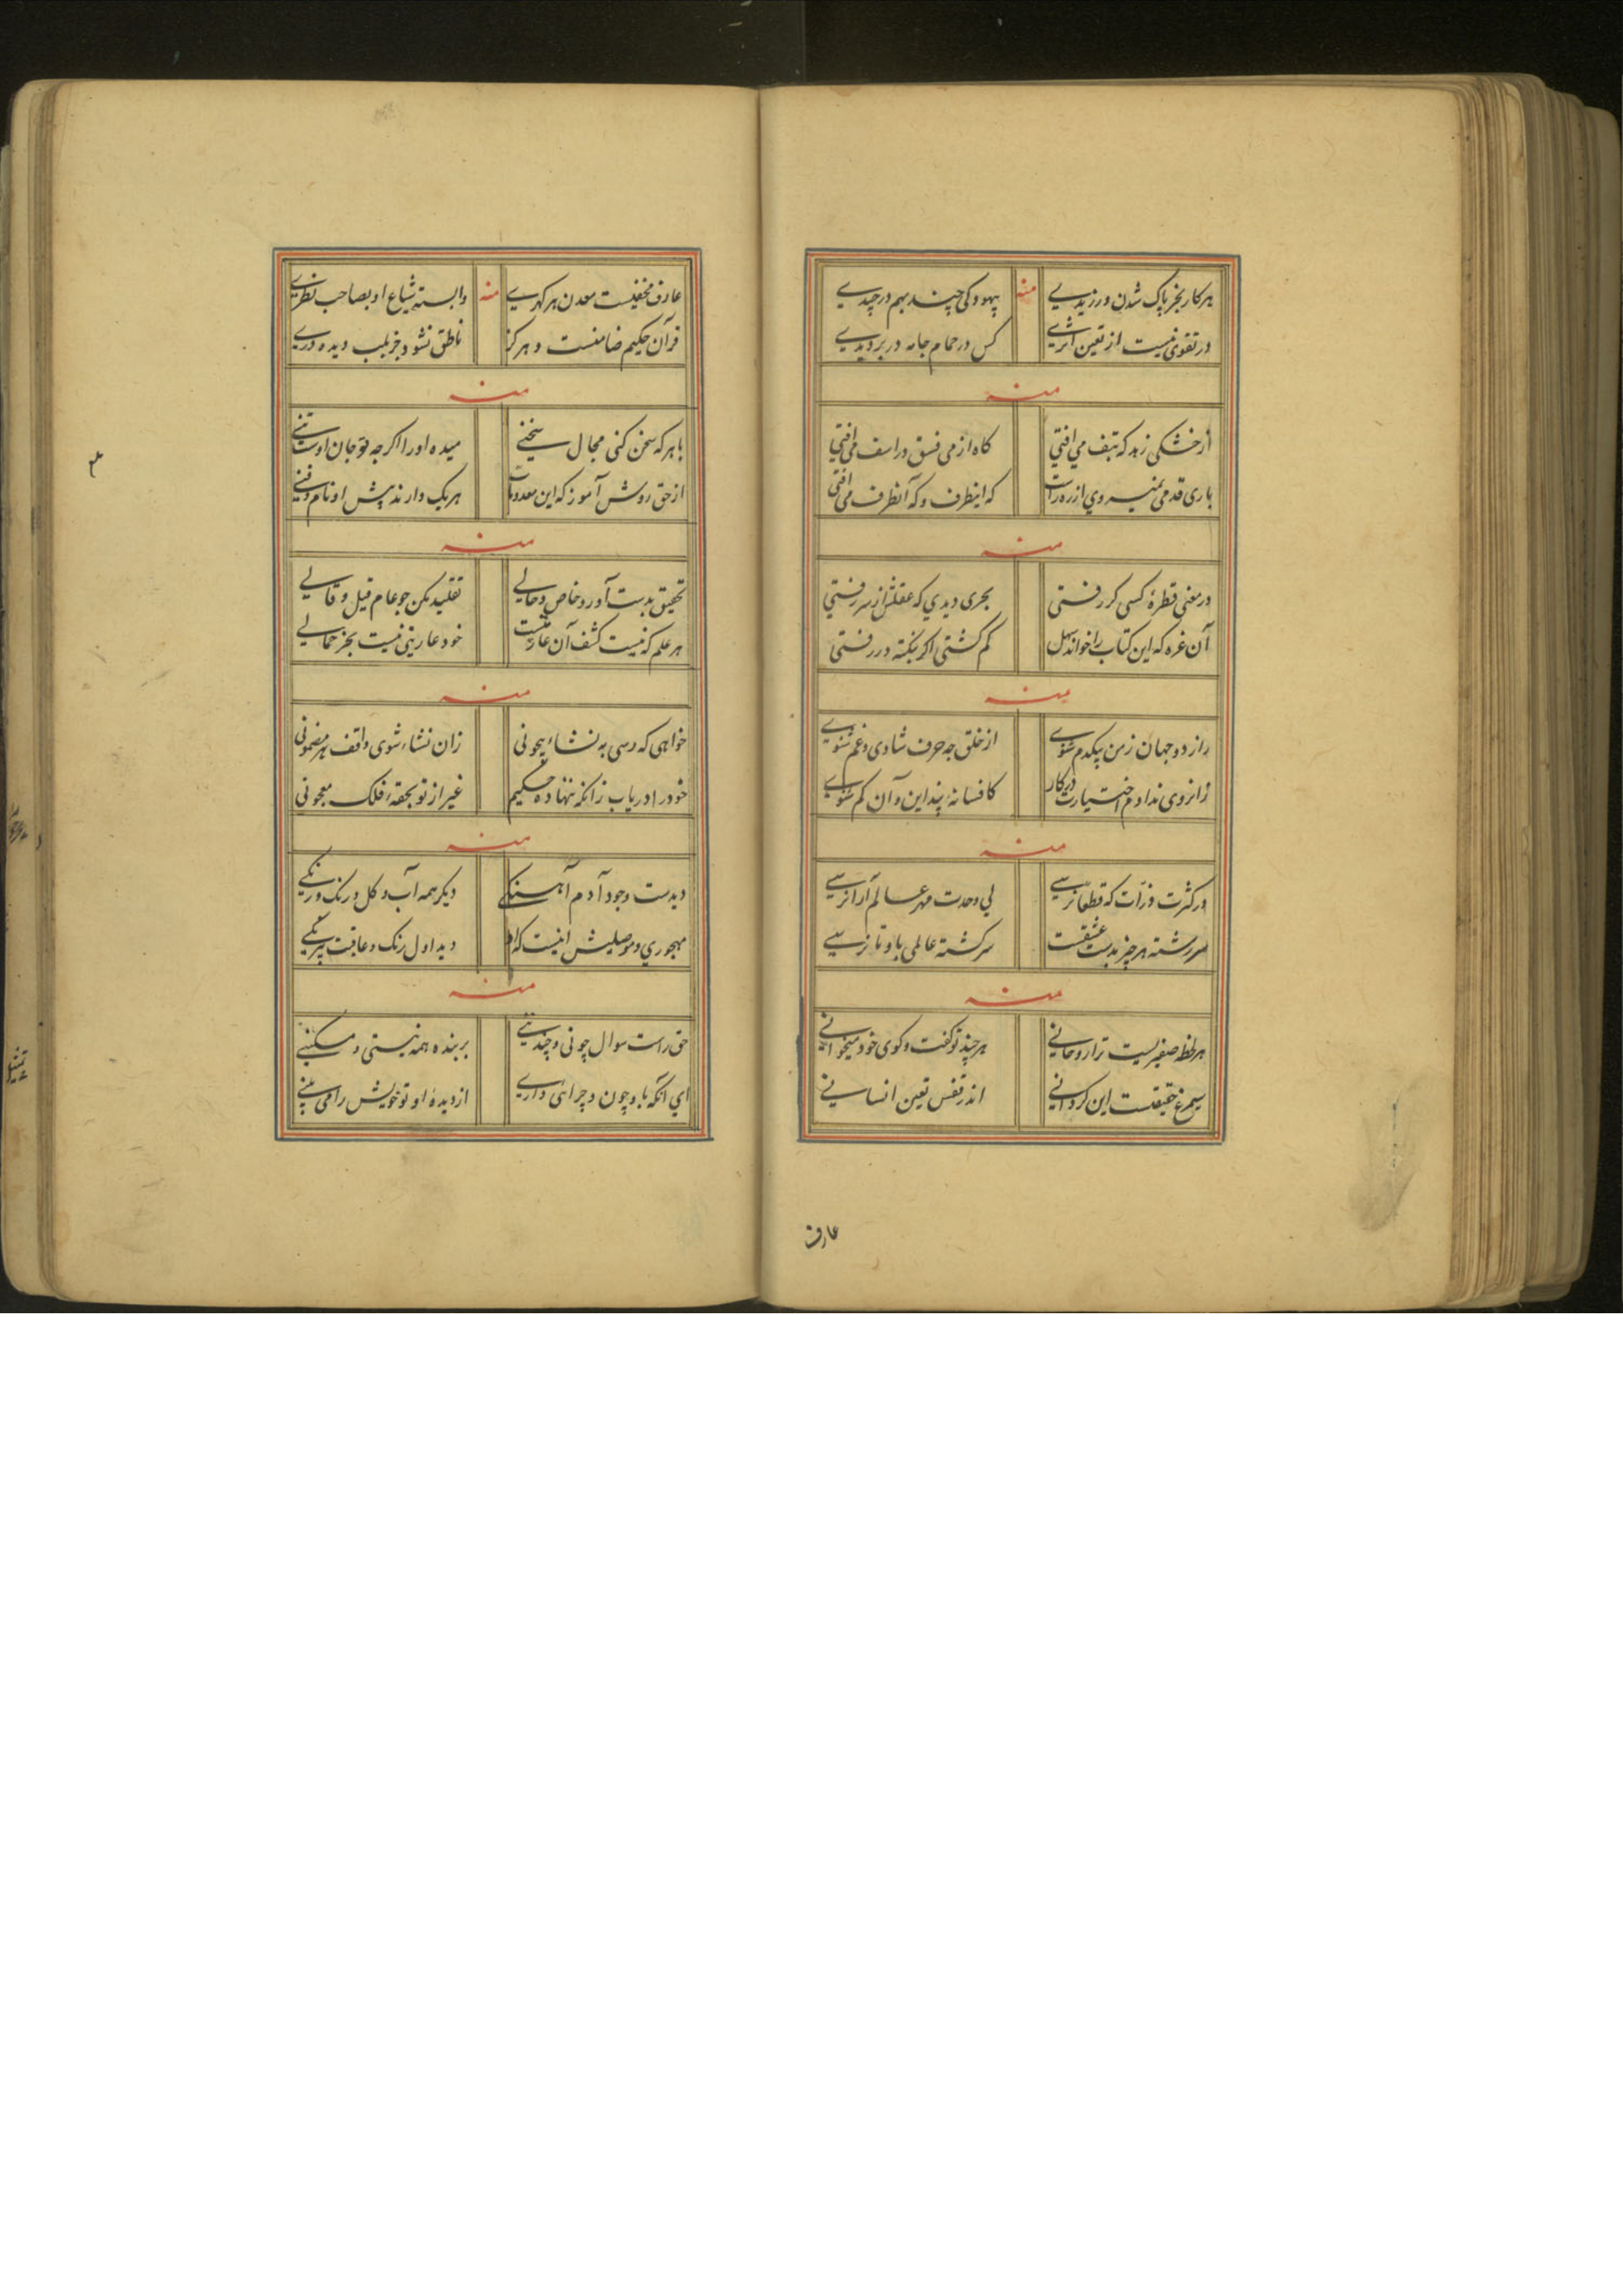 هرکار بجز پاک شدن ورزیدی منه بیهودگی چند بهم درچیدی
در تقوی نیست از تعین اثری کس در حمام جامه در بر دیدی
منه
از خشکی زهد که بتف می افتی کاه از می فسق در اسف می افتی
باری قدمی نمیروی از ره راست که اینطرف و که آنطرف می افتی
منه
در معنی قطرهٔ کسی کر رفتی بحری دیدی که عقلش از سر رفتی
آن غره که این کتاب را خواند سهل کم کشتی اکر بنکته در رفتی
منه
راز دو جهان ز من بیکدم شنوی از خلق چه حرف شادی و غم شنوی
زانروی ندادم اختیارت در کار کافسانهٔ پند این و آن کم شنوی
منه
در کثرت ذرّات که قطعا نرسی بی وحدت مهر عالم آرا نرسی
سررشته هر چیز بدست عشقست سرکشته عالمی باو تا نرسی
منه
هر لحظه صفیریست ترا روحانی هرچند تو کفت و کوی خود میخوانی
سیمرغ حقیقت این کر دانی اندر قفس تعین انسانی
عارف
عارف مخفیست معدن هر کهری منه وابسته شیاع او بصاحب نظری
قرآن حکیم ضامنست و هرکز ناطق نشود جز بلب دیده وری
منه
با هر که سخن کنی مجال سخنی میده او را اکرچه تو جان او تنی
از حق روش آموز که این معدومات هریک دارند پیش او نام و فنی
منه
تحقیق بدست آور و خاص و حالی تقلید مکن چو عام قیل و قالی
هر علم که نیست کشف آن عاریتیست خود عاریتی نیست بجز حمالی
منه
خواهی که رسی به نشاء بیچونی زان نشاء شوی واقف هر مضمونی
خود را دریاب زانکه ننهاده حکیم غیر از تو بحقهٔ فلک معجونی
منه
دیدست وجود آدم آهنکی دیکر همه آب و کل و رنک و رنکی
مهجوری و موصلیش اینست که او دید اول رنک و عاقبت بیرنکی
منه
حق راست سوال چونی و چندینی بر بنده همه نیستی و مسکینی
ای آنکه باو چون و چرائی داری از دیدهٔ او تو خویش را می بینی